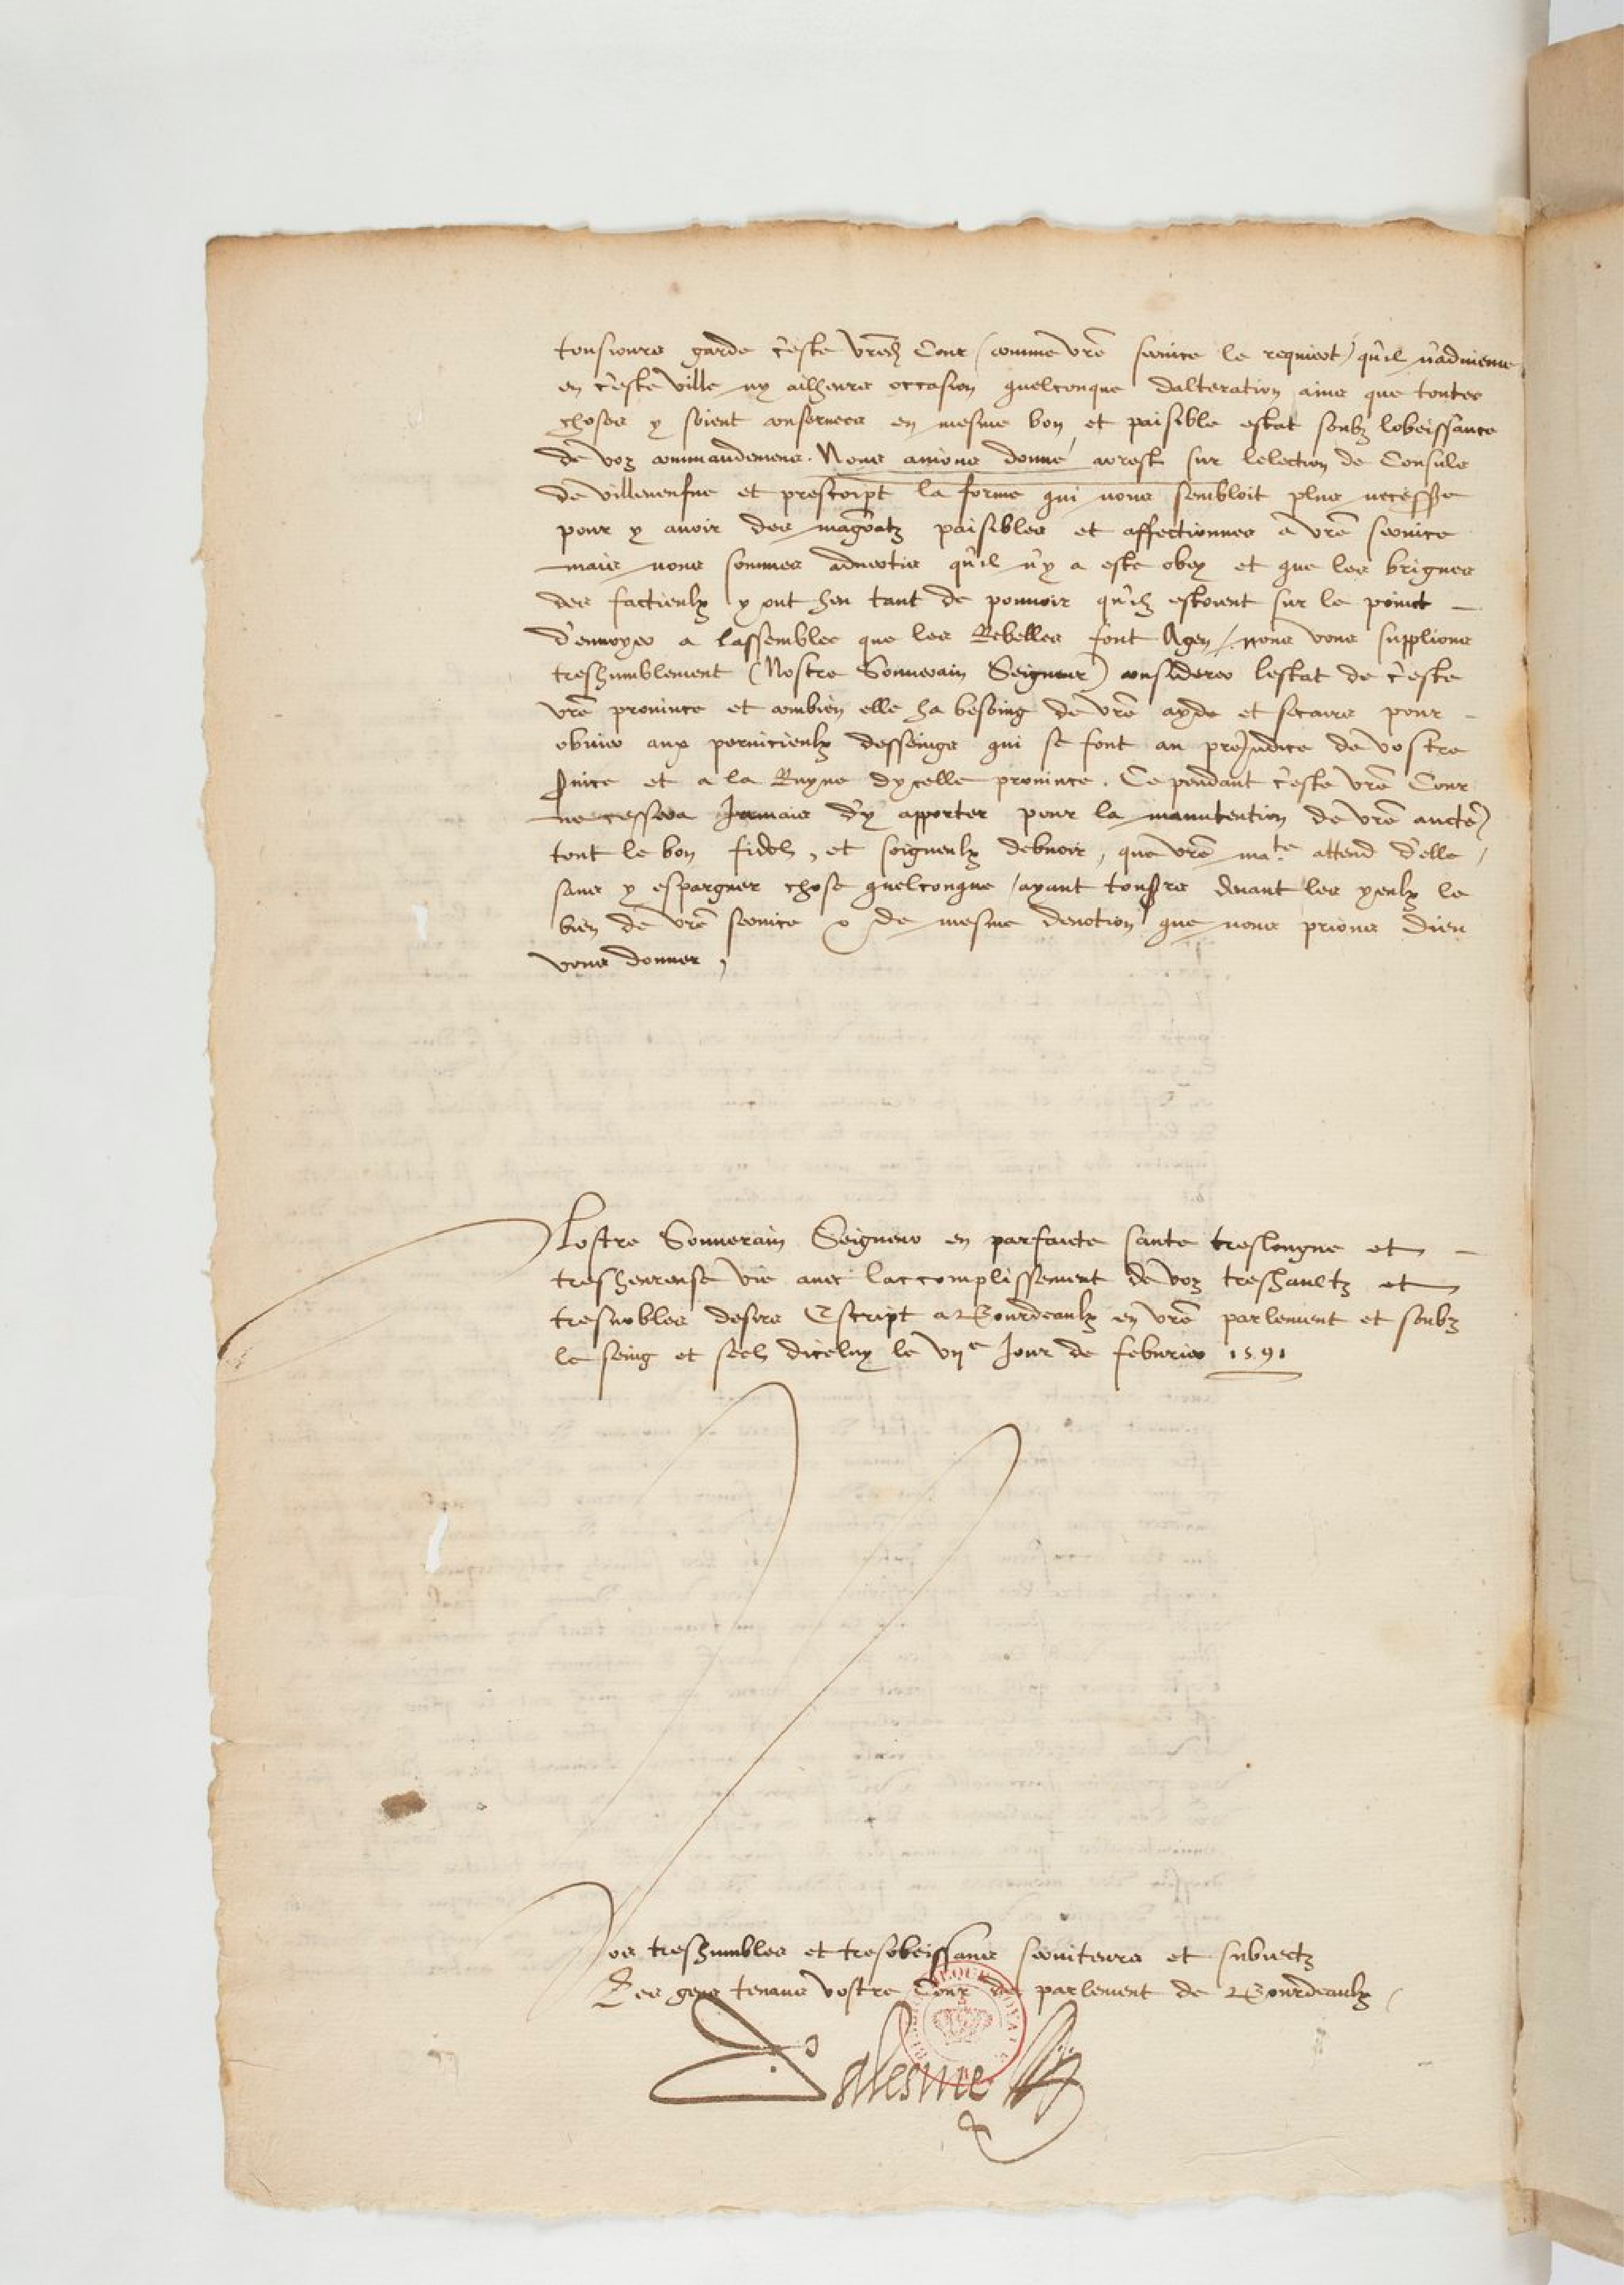 tousiours garde c'este vred. Cour (comme vre service le requiert) qu'il n'advienne
en c'este ville ny ailheurs occasion quelconque dalteration ains que toutes
choses y soient conservees en mesme bon et paisible estat soubz lobeissance
de voz commandemens. Nous avions donné arrest sur lelection de Consuls
de villeneufve et prescript la forme qui nous sembloit plus necessre
pour y avoir des magratz paisibles et affectionnes a vre service
mais nous sommes advertis qu'il n'y a este obey et que les brigues
des factieulx y ont heu tant de pouvoir qu'ilz estoient sur le poinct
d'envoyer a lassemblee que les Rebelles font Agen / nous vous supplions
treshumblement (Nostre Souverain Seigneur) considerer lestat de c'este
vre province et combien elle ha besoing de vre ayde et secours pour
obvier aux pernicieulx desseings qui se font au preJudice de vostre
service et a la Ruyne dycelle province. Ce pendant c'este vre Cour
ne cessera Jamais d'y apporter pour la manutention de vre aucte
tout le bon fidel, et soigneulx debvoir, que vre mate attend d'elle,
sans y espargner chose quelconque / ayant tousrs devant les yeulx le
bien de vre service de mesme devotion que nous prions Dieu
vous donner,
Nostre Souverain Seigneur en parfaicte sante treslongue et
tresheureuse vie avec laccomplissement de voz treshaultz et
tresnobles desirs Escript a Bourdeaulx en vre parlement et soubz
le seing et seel diceluy le vije Jour de febvrier 1591
Vos treshumbles et tresobeissans serviteurs et subiectz
Les gens tenans vostre Cour de parlement de Bourdeaulx,
Dalesme